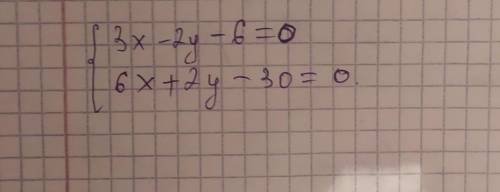 { 3x - 2y - 6 = 0
6x + 2y - 30 = 0.